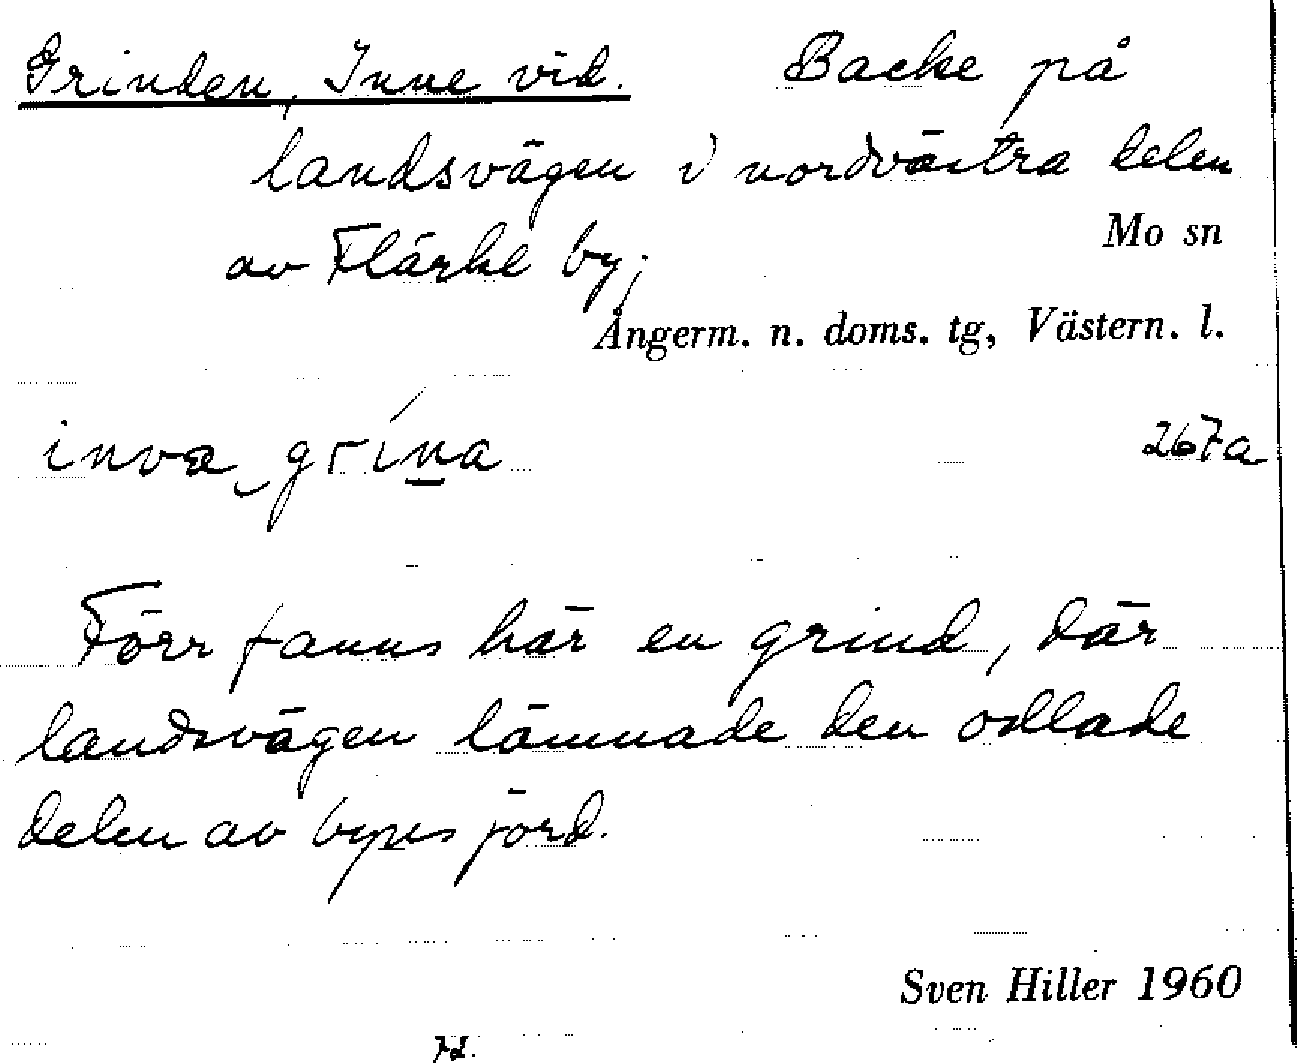 Grinden, Inne vid. Backe på
landsvägen i nordvästra delen
av Flärke by;
Mo sn
Ångerm. n. doms. tg, Västern. l.
inva gríṉa
267a
Förr fanns här en grind, där
landsvägen lämnade den odlade
delen av byns jord.
Sven Hiller 1960